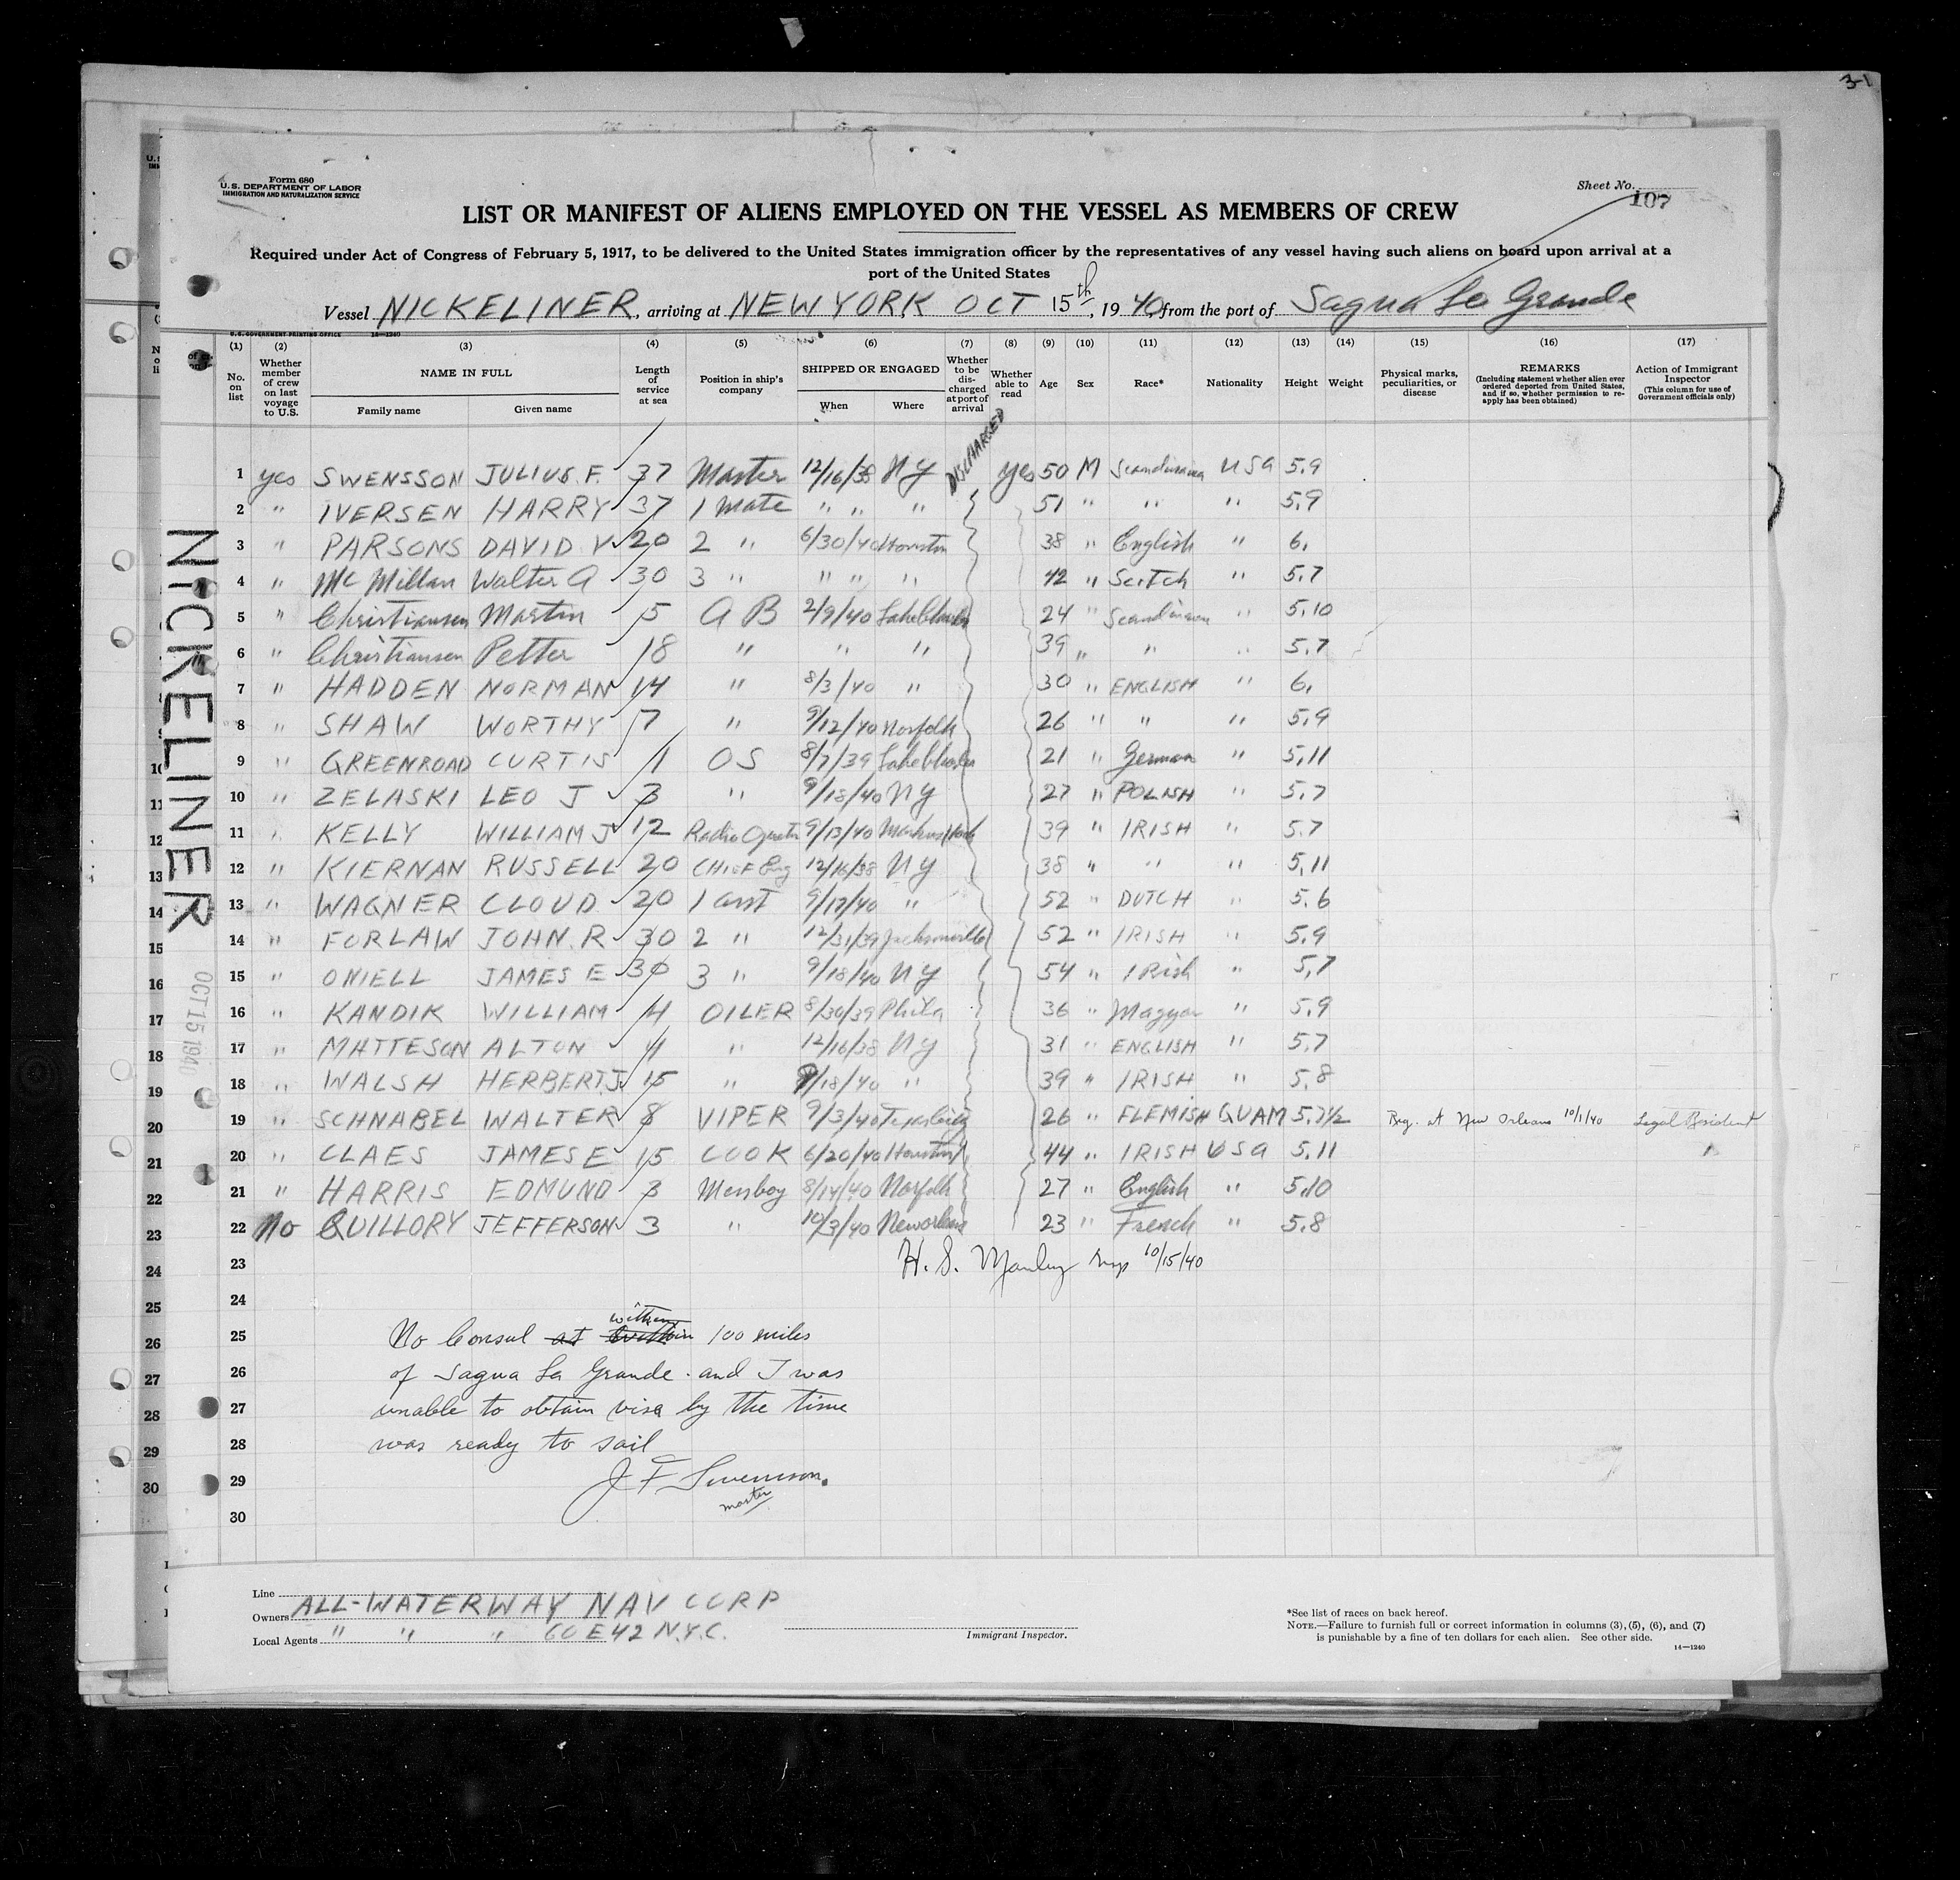 3-1
Form 680
U.S. DEPARTMENT OF LABOR
IMMIGRATION AND NATURALIZATION SERVICE
Sheet No.
107
LIST OR MANIFEST OF ALIENS EMPLOYED ON THE VESSEL AS MEMBERS OF CREW
Required under Act of Congress of February 5, 1917, to be delivered to the United States immigration officer by the representatives of any vessel having such aliens on board upon arrival at a
port of the United States
Vessel NICKELINER, arriving at NEW YORK OCT 15th, 1940, from the port of Sagua La Grande
U.S. GOVERNMENT PRINTING OFFICE 14—1240
(1) (2) (3) (4) (5) (6) (7) (8) (9) (10) (11) (12) (13) (14) (15) (16) (17)
No. on list
Whether member of crew on last voyage to U.S.
NAME IN FULL
Family name Given name
Length of service at sea
Position in ship's company
SHIPPED OR ENGAGED
When Where
Whether to be discharged at port of arrival
Whether able to read
Age Sex Race* Nationality Height Weight
Physical marks, peculiarities, or disease
REMARKS
(Including statement whether alien ever ordered deported from United States, and if so, whether permission to reapply has been obtained)
Action of Immigrant Inspector
(This column for use of Government officials only)
DISCHARGED
1 yes SWENSSON JULIUS. F. 37 Master 12/16/38 NY yes 50 M Scandinavian USA 5.9
2 " IVERSEN HARRY 37 1 Mate " " " 51 " " " 5.9
3 " PARSONS DAVID V 20 2 " 6/30/40 Houston 38 " English " 6,
4 " McMillan Walter A 30 3 " " " " 42 " Scotch " 5.7
5 " Christiansen Martin 5 AB 2/9/40 Lake Charles 24 " Scandinavian " 5.10
6 " Christiansen Petter 18 " " " 39 " " " 5.7
7 " HADDEN NORMAN 14 " 8/3/40 " 30 " ENGLISH " 6,
8 " SHAW WORTHY 7 " 9/12/40 Norfolk 26 " " " 5.9
9 " GREENROAD CURTIS 1 OS 8/7/39 Lake Charles 21 " German " 5,11
10 " ZELASKI LEO J 3 " 9/18/40 NY 27 " POLISH " 5.7
11 " KELLY WILLIAM J 12 Radio Operator 9/13/40 Marcus Hook 39 " IRISH " 5.7
12 " KIERNAN RUSSELL 20 CHIEF Eng 12/16/38 NY 38 " " " 5,11
13 " WAGNER CLOUD 20 1 asst 9/17/40 " 52 " DUTCH " 5.6
14 " FORLAW JOHN. R 30 2 " 12/31/39 Jacksonville 52 " IRISH " 5.9
15 " ONIELL JAMES E 30 3 " 9/18/40 NY 54 " IRish " 5,7
16 " KANDIK WILLIAM 4 OILER 8/30/39 Phila 36 " Magyar " 5.9
17 " MATTESON ALTON 4 " 12/16/38 NY 31 " ENGLISH " 5.7
18 " WALSH HERBERT J 15 " 9/18/40 " 39 " IRISH " 5.8
19 " SCHNABEL WALTER 8 VIPER 9/3/40 Texas City 26 " FLEMISH GUAM 5.7½ Reg. at New Orleans 10/1/40 Legal Resident
20 " CLAES JAMES E 15 COOK 6/20/40 Houston 44 " IRISH USA 5.11
21 " HARRIS EDMUND 3 Messboy 8/14/40 Norfolk 27 " English " 5.10
22 No QUILLORY JEFFERSON 3 " 10/3/40 New orleans 23 " French " 5.8
23 H. S. Manley Insp 10/15/40
24
25 No Consul at within within 100 miles
26 of Sagua La Grande. and I was
27 unable to obtain visa by the time
28 was ready to sail
29 J F Swensson.
master
30
NICKELINER
OCT 15 1940
Line
Owners ALL-WATERWAY NAV CORP
Local Agents " " " 60 E 42 N.Y.C.
Immigrant Inspector.
*See list of races on back hereof.
NOTE.—Failure to furnish full or correct information in columns (3), (5), (6), and (7)
is punishable by a fine of ten dollars for each alien. See other side.
14—1240